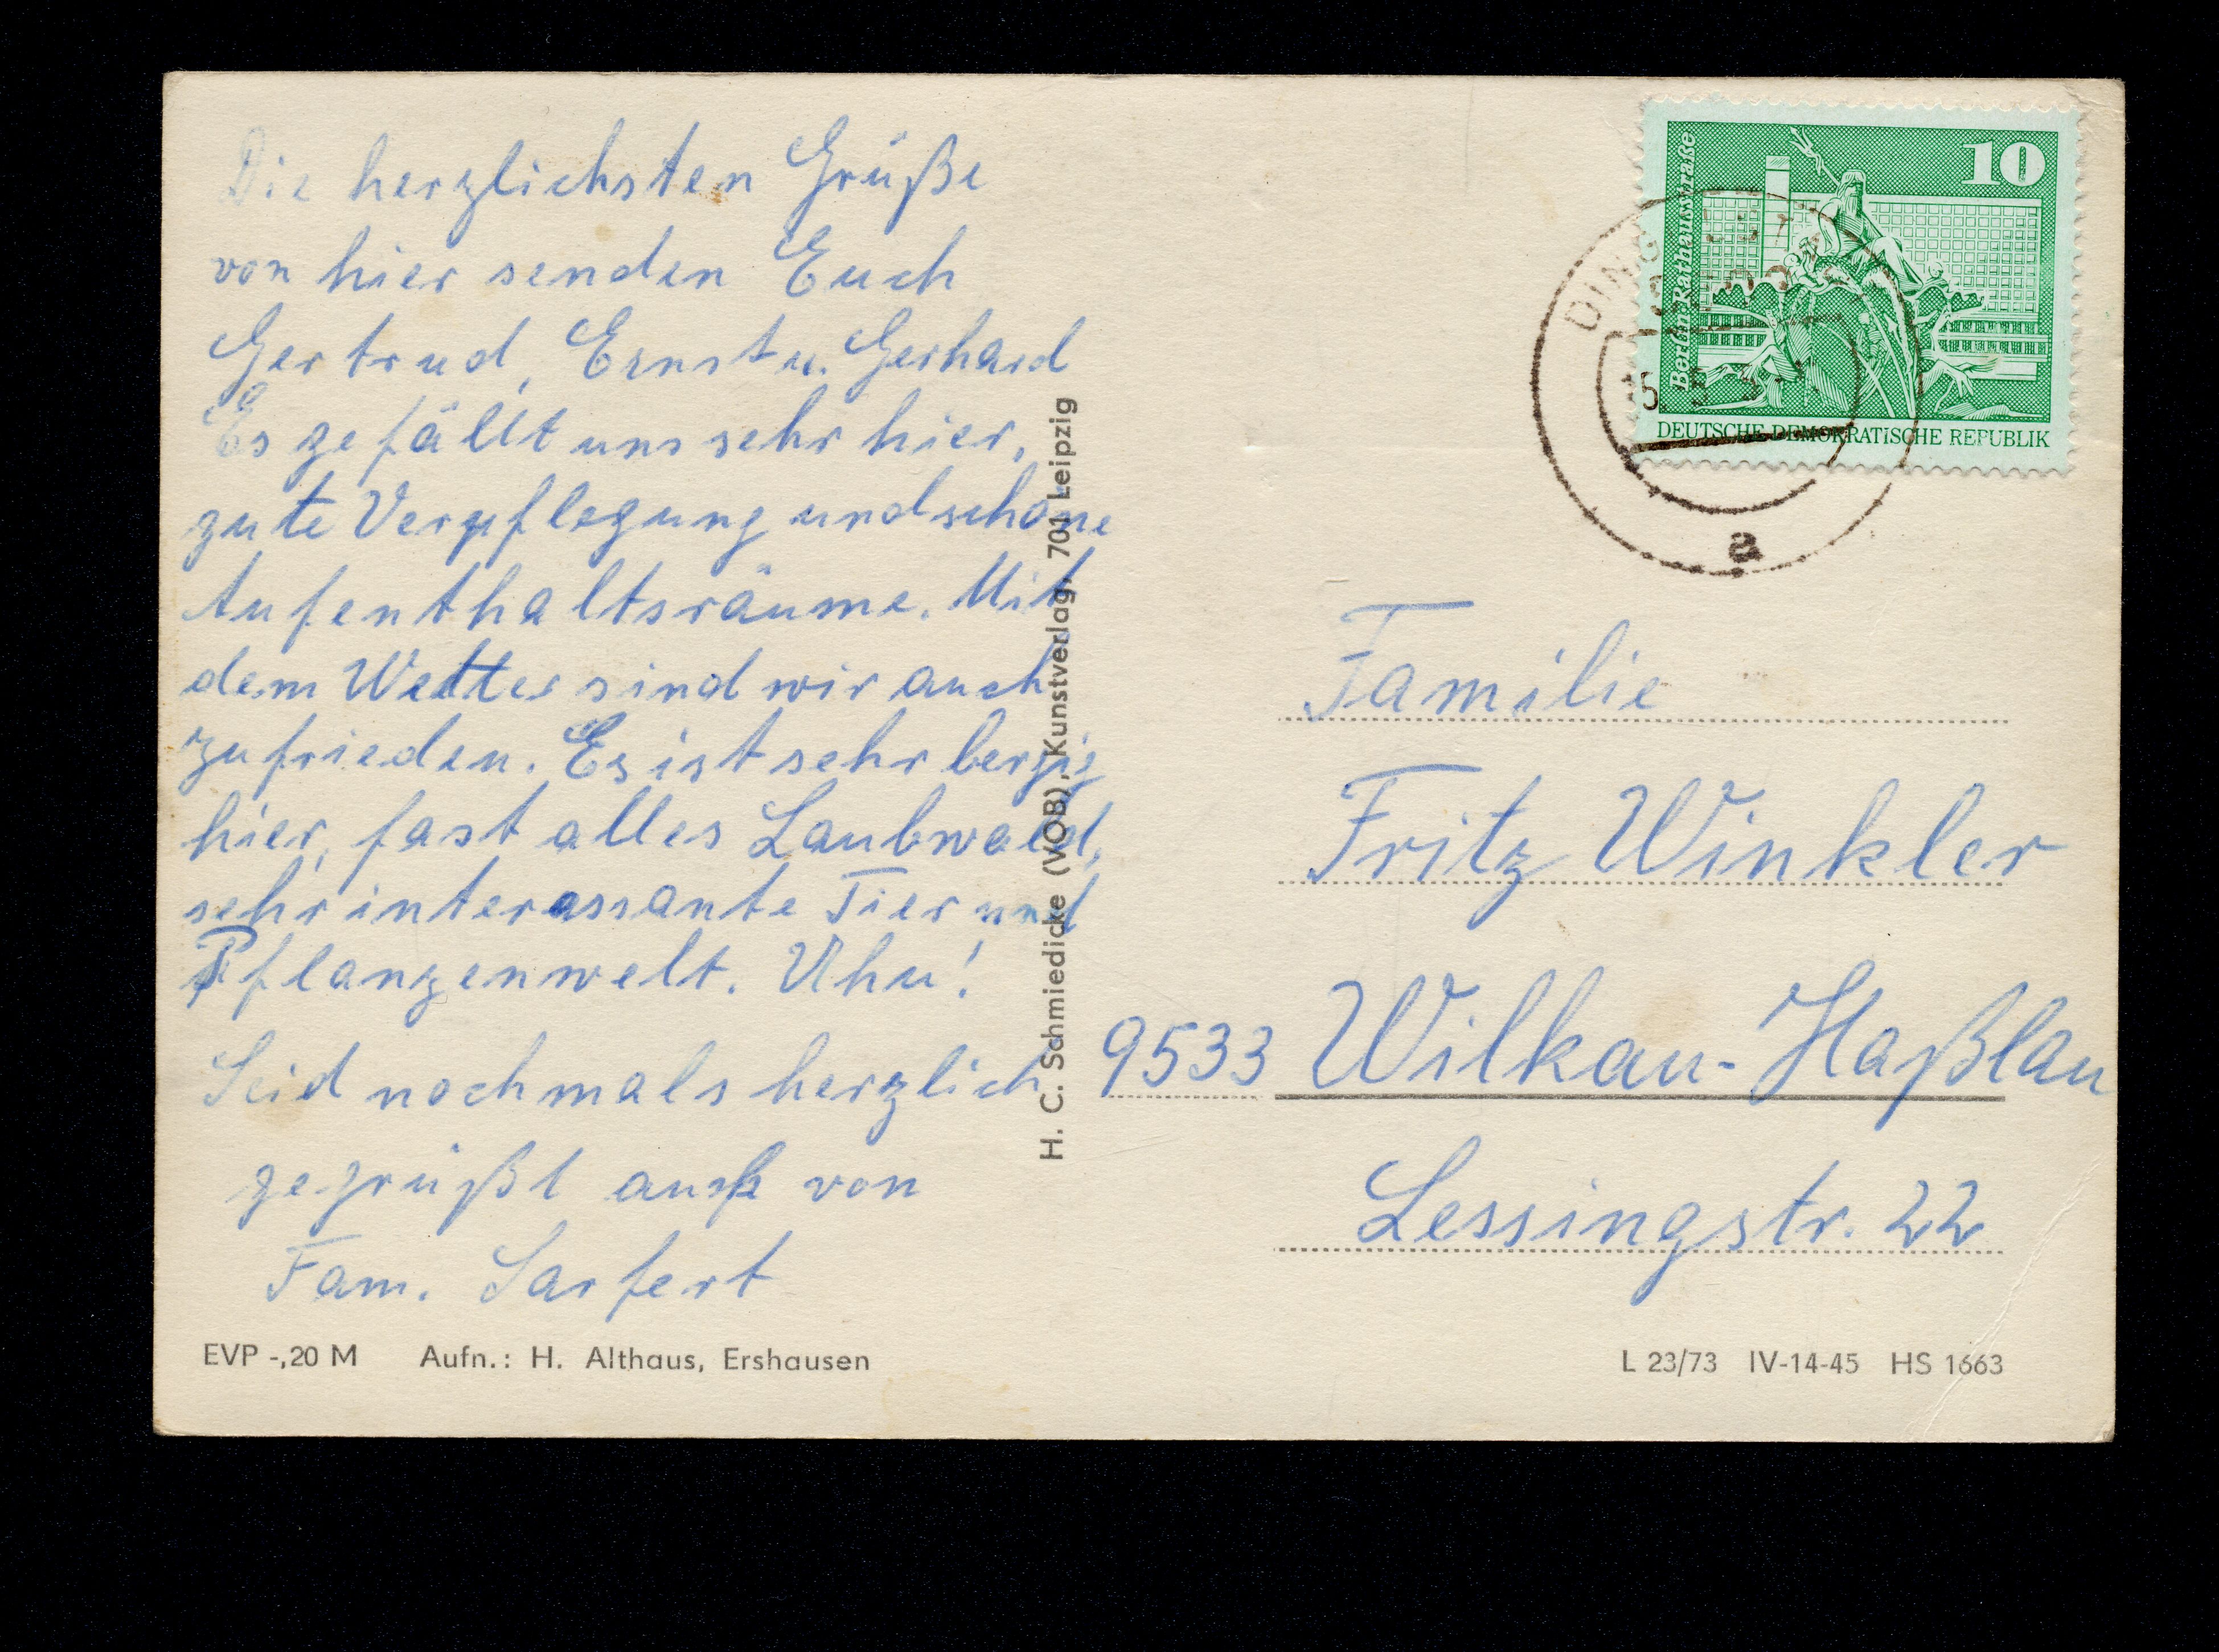 Die herzlichsten Grüße
von hier senden Euch
Gertrud, Ernst u. Gerhard
Es gefällt uns sehr hier,
gute Verpflegung und schöne
Aufenthaltsräume. Mit
dem Wetter sind wir auch
zufrieden. Es ist sehr bergig
hier, fast alles Laubwald,
sehr interessante Tier und
Pflanzenwelt. Uhu!
Seid nochmals herzlich
gegrüßt auch von
Fam. Sarfert
EVP -,20 M Aufn.: H. Althaus, Ershausen
H. C. Schmiedicke (VOB), Kunstverlag, 701 Leipzig
10
Berlin, Rathausstraße
DEUTSCHE DEMOKRATISCHE REPUBLIK
a
Familie
Fritz Winkler
9533 Wilkau-Haßlau
Lessingstr. 22
L 23/73 IV-14-45 HS 1663